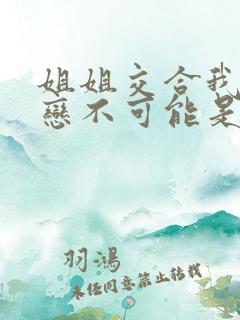 姐姐交合我
戀不可能是
羽鴻
未任同意禁止转载